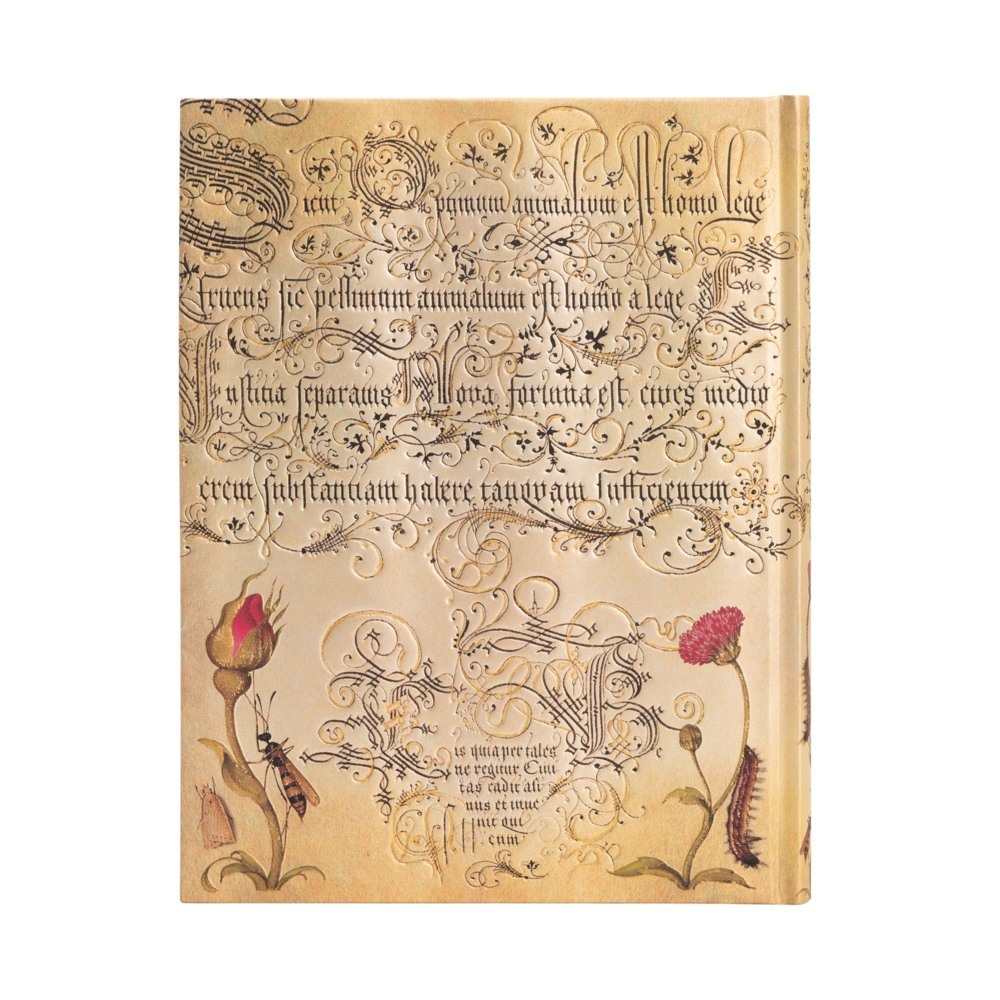 Sicut Optimum animalium est homo lege
fruens sic pessimum animalium est homo a lege Et
Iustitia separatus Nova fortuna est, cives medio
crem substantiam habere tanqvam sufficientem
is quia per tales
ne regitur. Civi
tas cadit asi
nus et inve
nit qui
cum